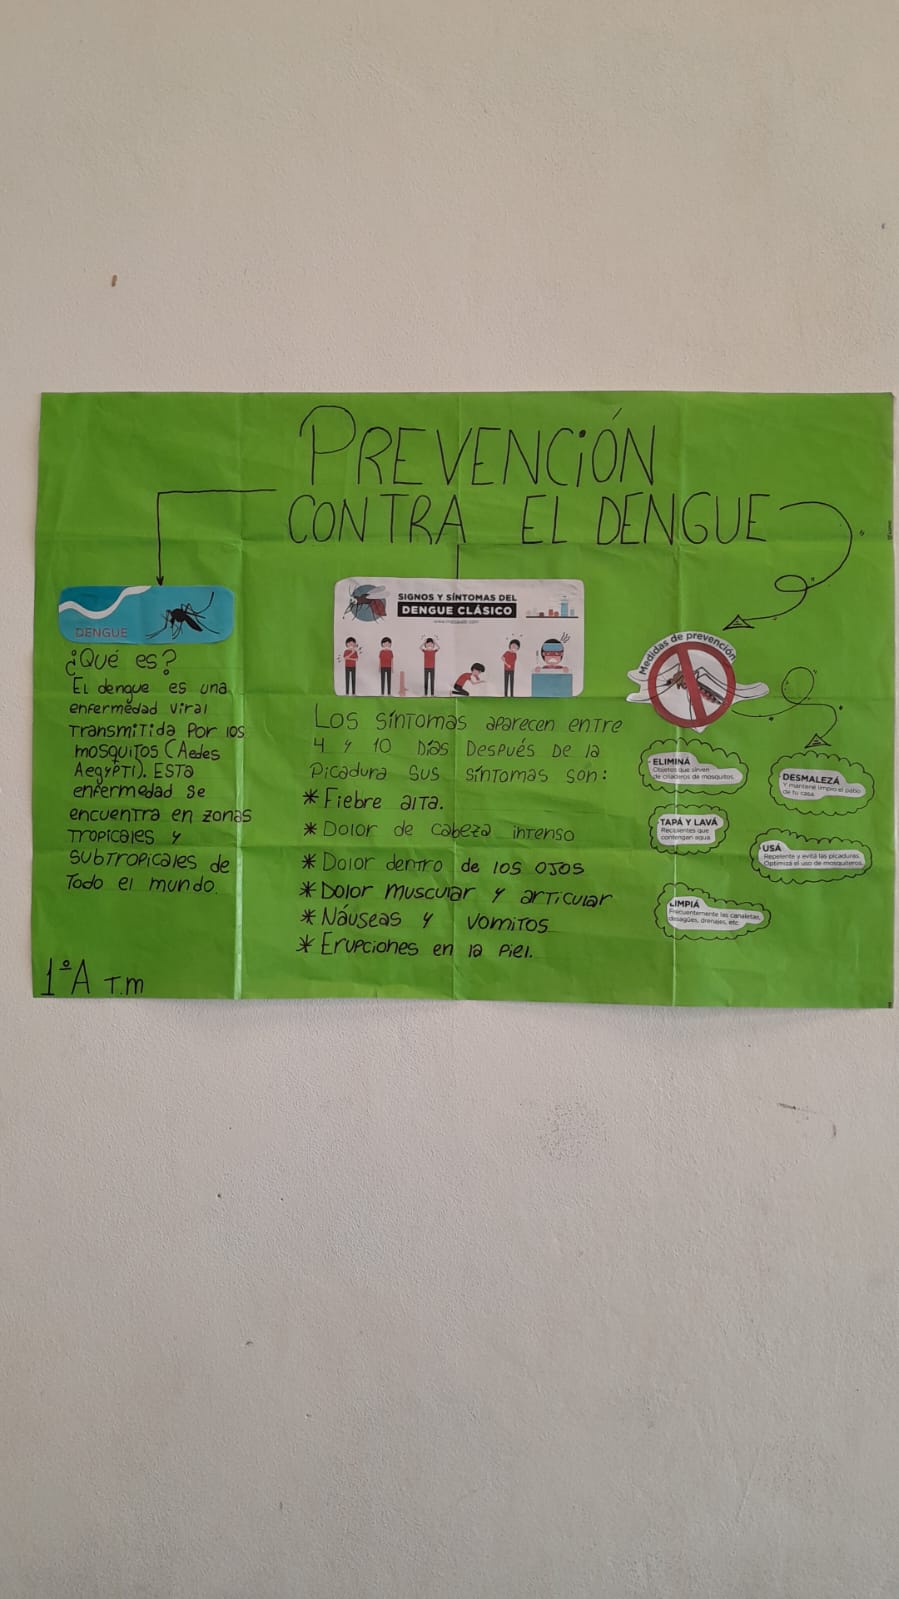 PREVENCIÓN
CONTRA EL DENGUE
DENGUE
¿Qué es?
El dengue es una
enfermedad viral
transmitida por los
mosquitos (Aedes
Aegypti). Esta
enfermedad se
encuentra en zonas
tropicales y
subtropicales de
todo el mundo.
1°A T.m
SIGNOS Y SÍNTOMAS DEL
DENGUE CLÁSICO
Los síntomas aparecen entre
4 y 10 días después de la
picadura sus síntomas son:
* Fiebre alta.
* Dolor de cabeza intenso
* Dolor dentro de los ojos
* Dolor muscular y articular
* Náuseas y vomitos
* Erupciones en la piel.
Medidas de prevención
ELIMINÁ
Objetos que sirven
de criaderos de mosquitos.
DESMALEZÁ
Y mantené limpio el patio
de tu casa.
TAPÁ Y LAVÁ
Recipientes que
contengan agua.
USÁ
Repelente y evitá las picaduras.
Optimizá el uso de mosquiteros.
LIMPIÁ
Frecuentemente las canaletas,
desagües, drenajes, etc.